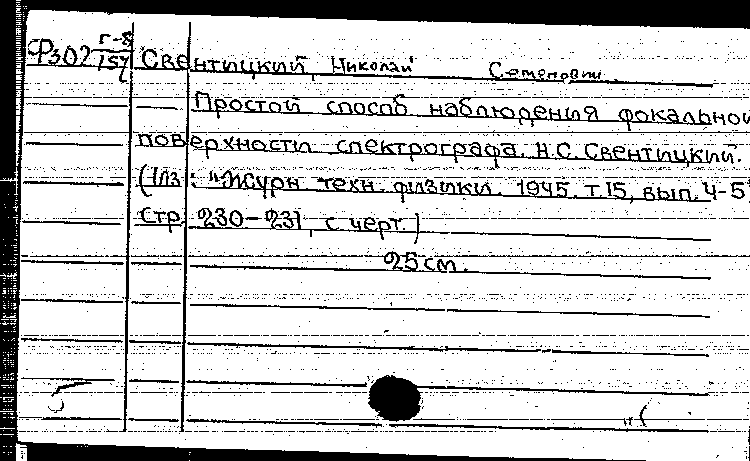 Ф302 Г-8/157 Свентицкий, Николай Семенович.
Простой способ наблюдения фокальной
поверхности спектрографа. Н.С. Свентицкий.
(Из: "Журн. техн. физики. 1945. т.15, вып. 4-5
стр. 230-231, с черт.)
25 см.
5